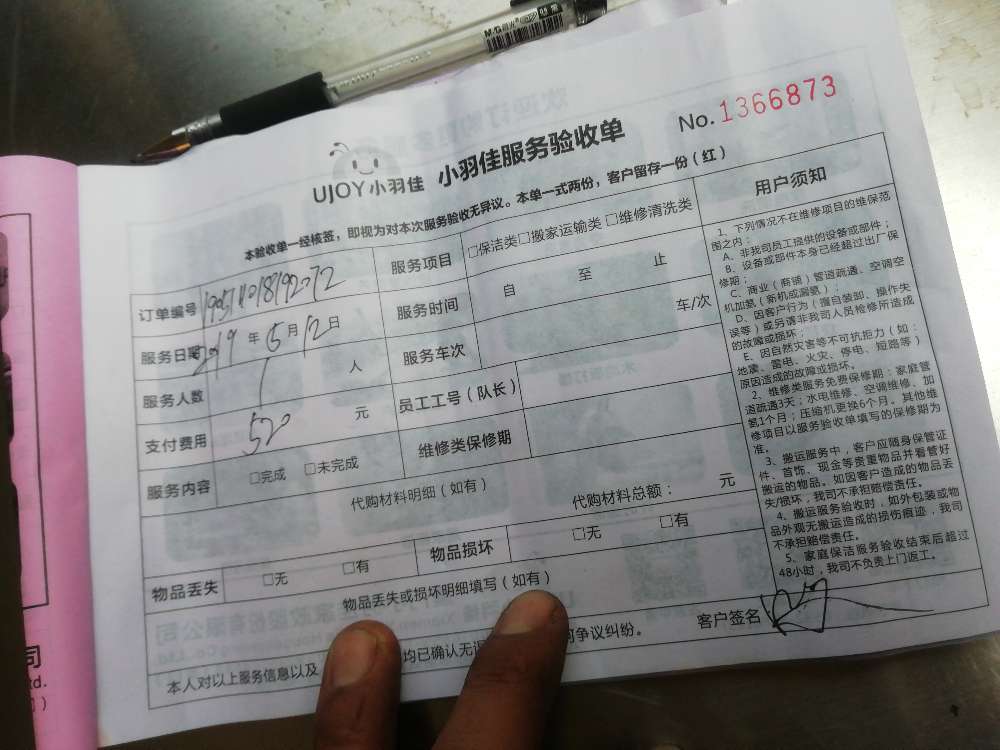 M&G
No. 1366873
UJOY小羽佳 小羽佳服务验收单
本验收单一经核签，即视为对本次服务验收无异议。本单一式两份，客户留存一份（红）
订单编号
服务项目 □保洁类□搬家运输类 □维修清洗类
服务日期 2019 年 5 月 12 日
服务时间 自 至 止
服务人数 1 人
服务车次 车/次
支付费用 520 元
员工工号（队长）
服务内容 □完成 □未完成
维修类保修期
代购材料明细（如有）
代购材料总额： 元
物品丢失 □无 □有
物品损坏 □无 □有
物品丢失或损坏明细填写（如有）
本人对以上服务信息以及
均已确认无误
争议纠纷。
客户签名
用户须知
1、下列情况不在维修项目的维保范
围之内：
A、非我司员工提供的设备或部件；
B、设备或部件本身已经超过出厂保
修期；
C、商业（商铺）管道疏通、空调空
机加氨（新机或漏氨）；
D、因客户行为（擅自装卸、操作失
误等）或另请非我司人员检修所造成
的故障或损坏；
E、因自然灾害等不可抗拒力（如：
地震、雷电、火灾、停电、短路等）
原因造成的故障或损坏。
2、维修类服务免费保修期：家庭管
道疏通3天；水电维修、空调维修、加
氨1个月；压缩机更换6个月。其他维
修项目以服务验收单填写的保修期为
准。
3、搬运服务中，客户应随身保管证
件、首饰、现金等贵重物品并看管好
搬运的物品。如因客户造成的物品丢
失/损坏，我司不承担赔偿责任。
4、搬运服务验收时，如外包装或物
品外观无搬运造成的损伤痕迹，我司
不承担赔偿责任。
5、家庭保洁服务验收结束后超过
48小时，我司不负责上门返工。
司
td.